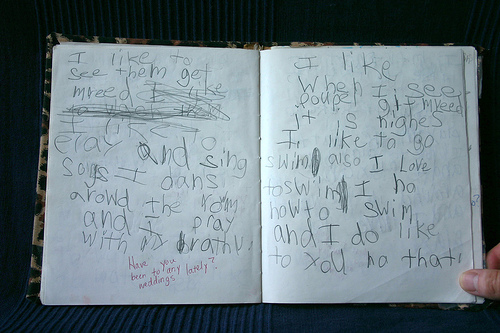 I like to
see them get
mreed I like
I like to
Play And sing
sogs I dans
arowd the room
and I play
with my brathu
Have you
been to any lately?
weddings
I like
When I see
poupel git mreed
it is nighes
I like to go
swim also I Love
to swim I no
how to swim
and I do like
to you no that!